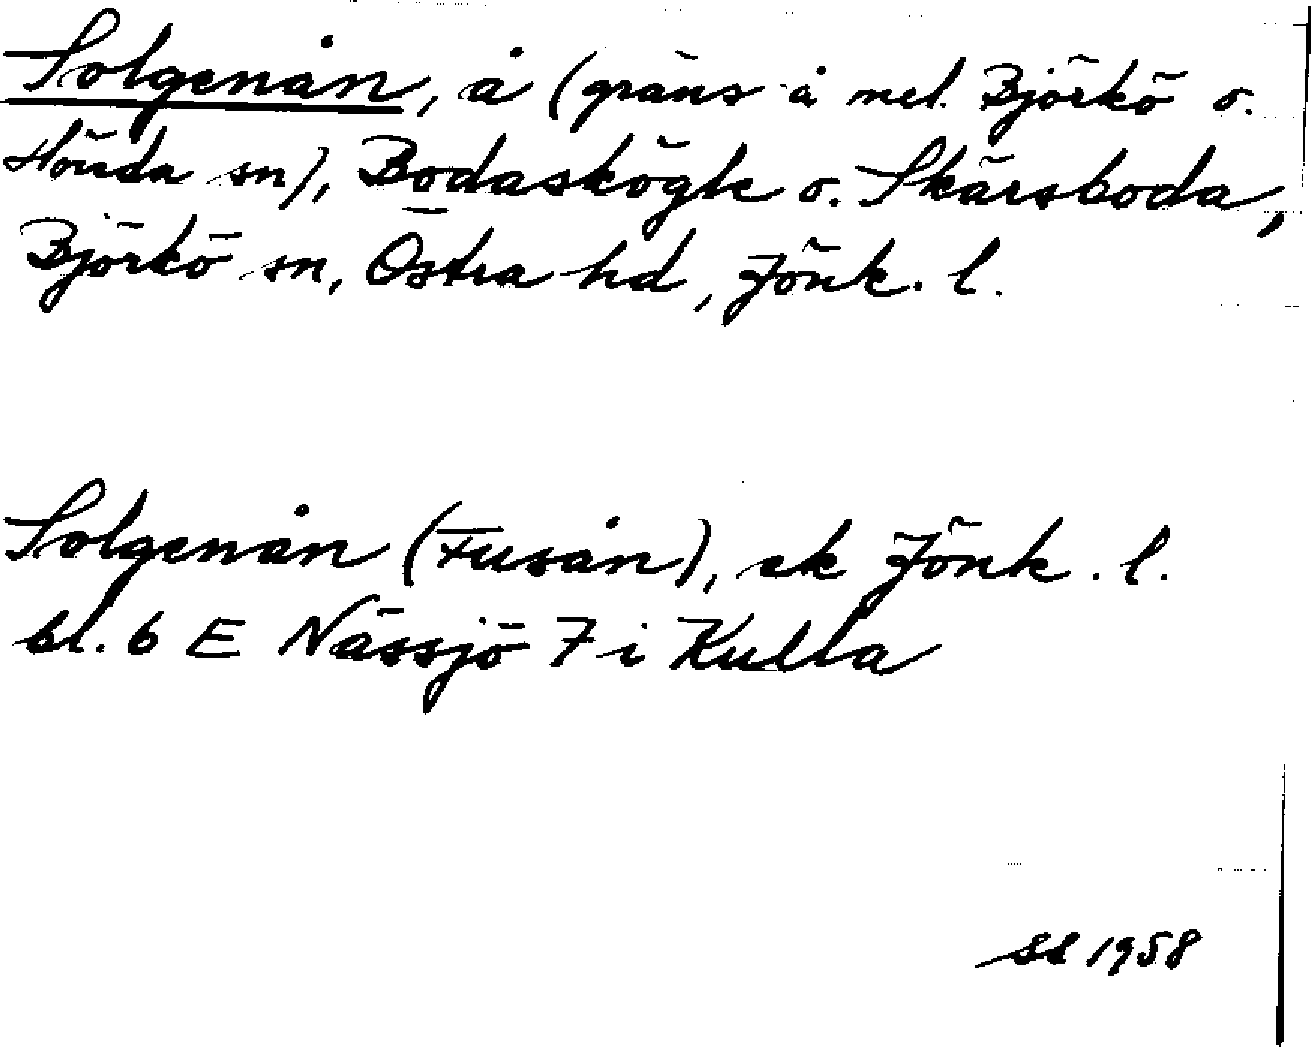 Solgenån, å (gräns å mel. Björkö o.
Hönda sn), Bodaskögle o. Skärsboda,
Björkö sn, Östra hd, Jönk. l.
Solgenån (Fusån), ek Jönk. l.
bl. 6 E Nässjö 7 i Kulla
SS 1958